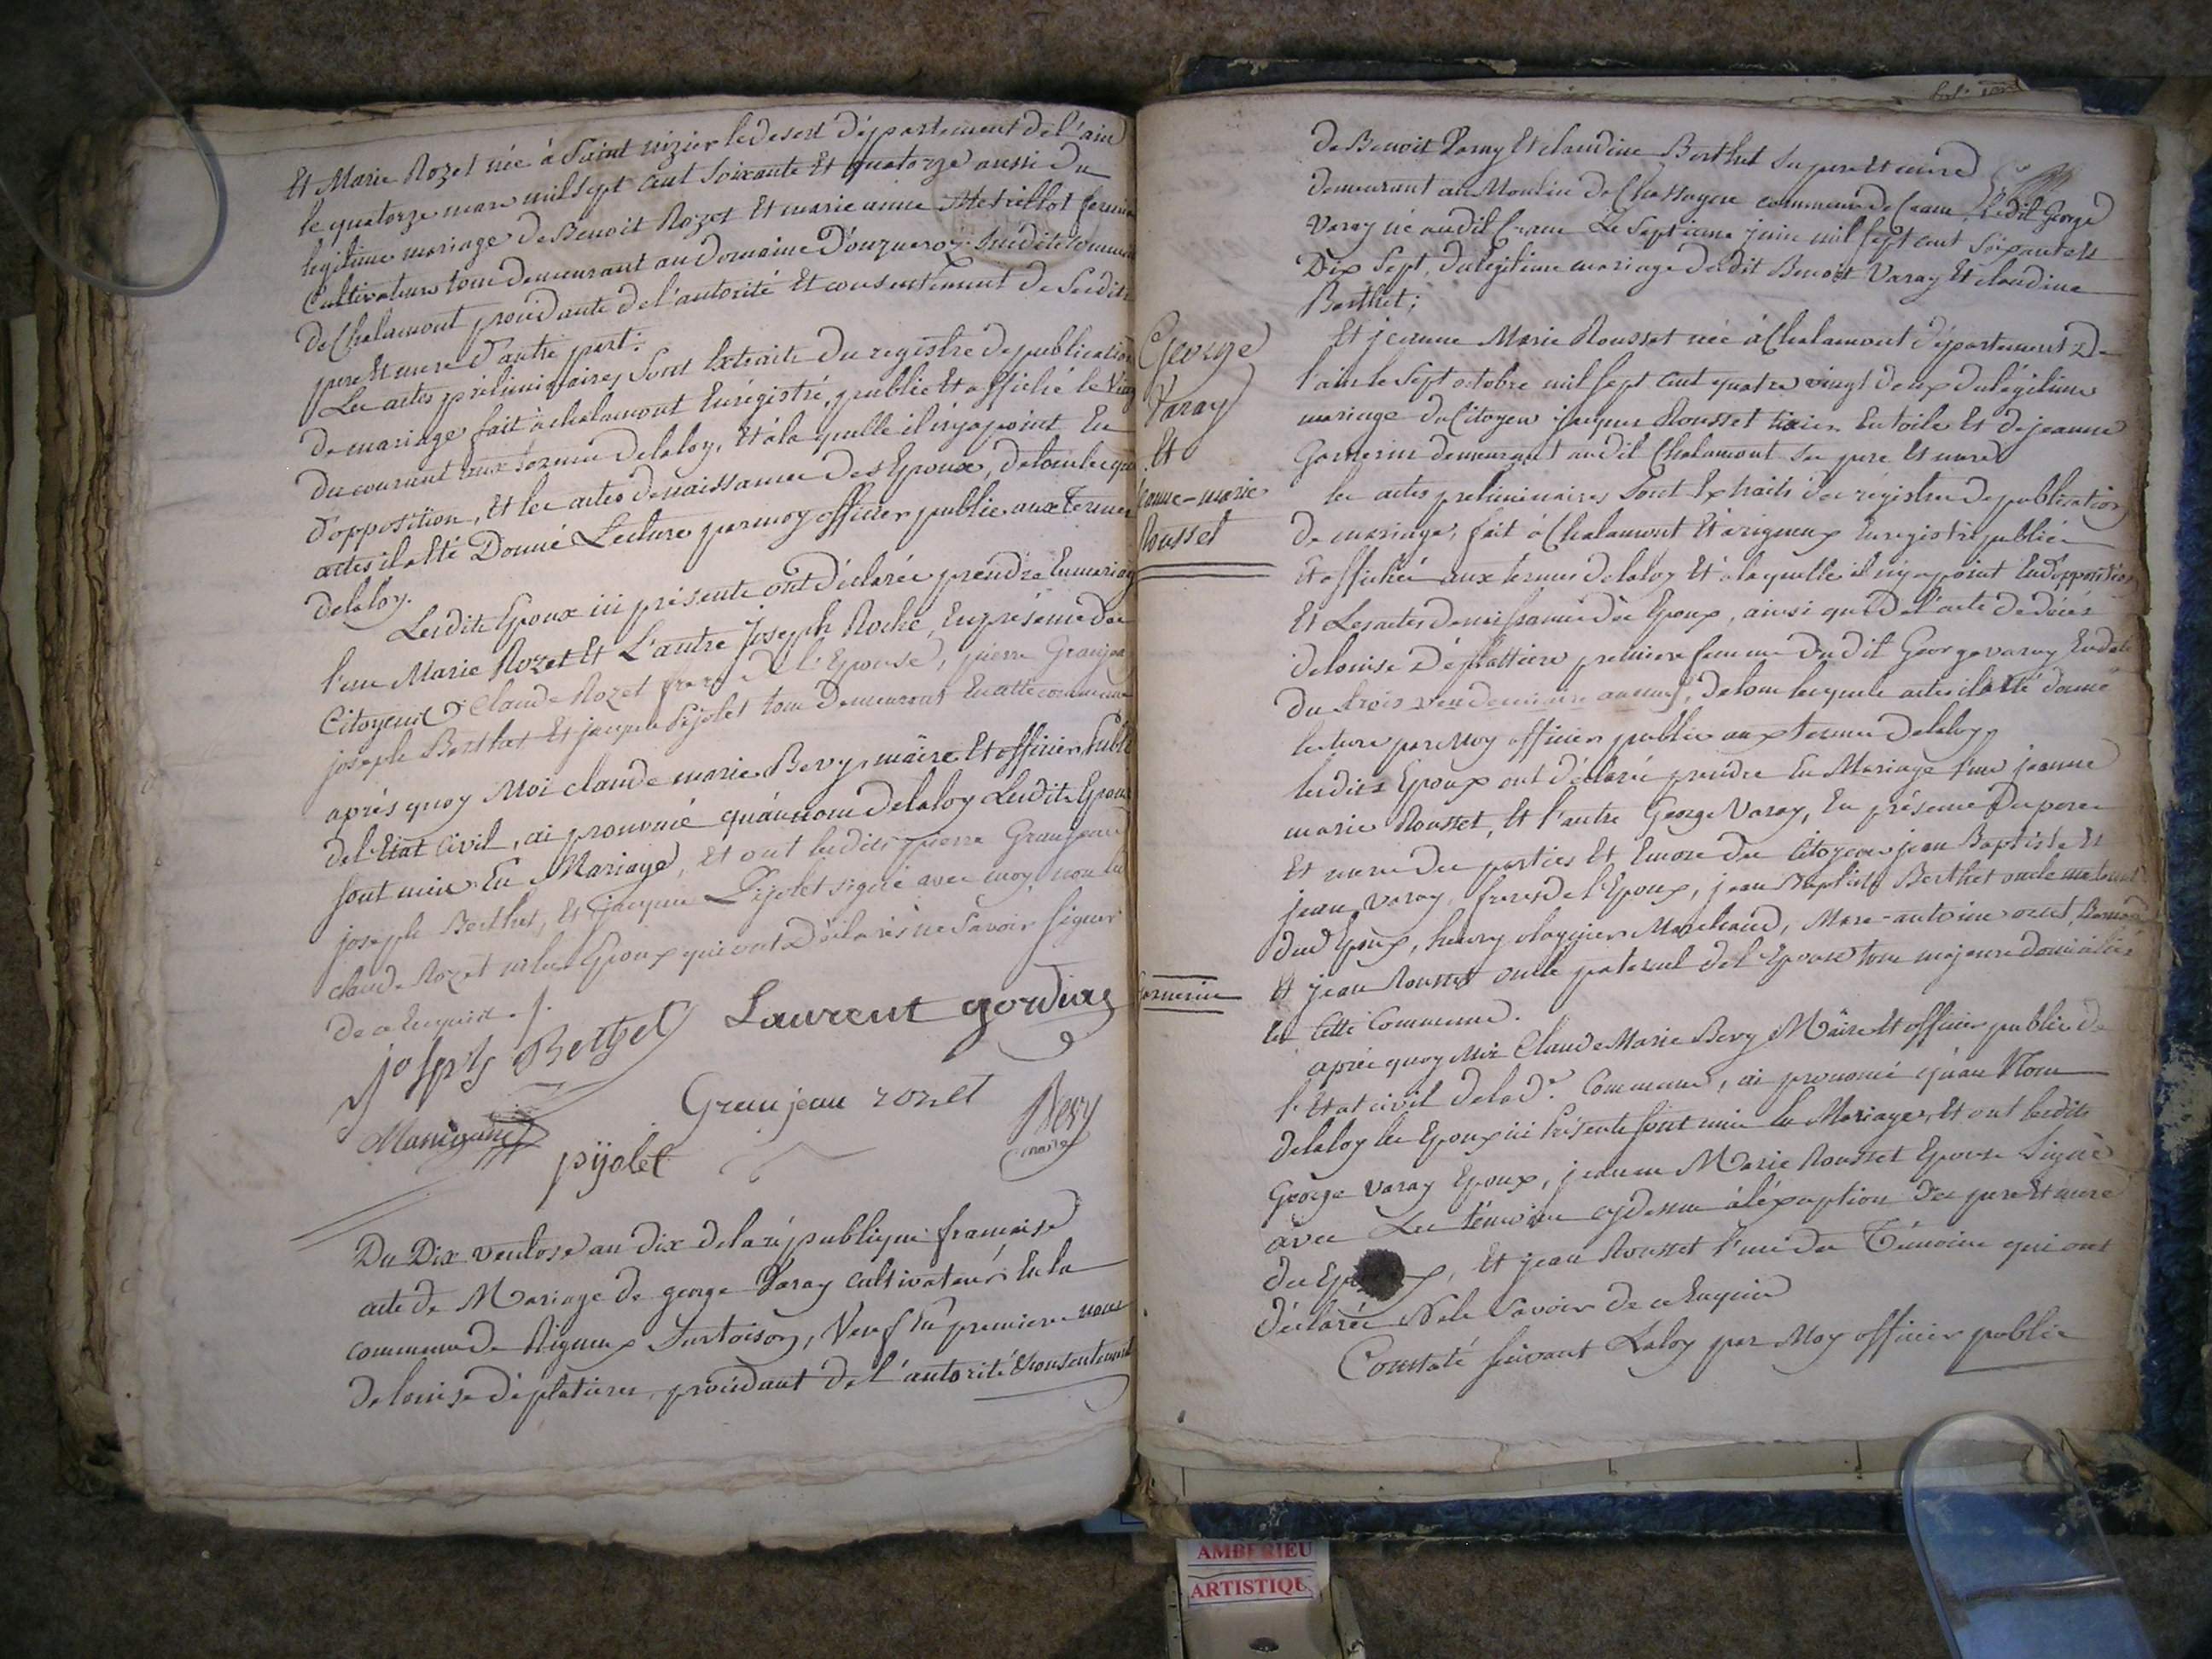 Et Marie Rozet née à Saint nizier le desert département de l'ain
le quatorze mars mil sept cent soixante Et quatorze aussi du
legitime mariage de Benoit Rozet Et marie anne
Cultivateurs tous demeurant au Domaine susdite commune
de Chalamont procédante de l'autorité Et consentement de sesdits
pere Et mere d'autre part.
Les actes préliminaires sont Extraits du registre de publication
de mariage fait à chalamont Enrégistré, publié Et affiché le
du courant aux termes de la loy, Et à la quelle il n'y a point Eu
d'opposition, Et les actes de naissance des Epoux, de tous lesquels
actes il a Eté Donné Lecture par moy officier public aux termes
de la loy.
Lesdits Epoux ici présents ont déclaré prendre En mariage
l'une Marie Rozet Et L'autre Joseph Roche, En présence des
Citoyens Claude Rozet frere de l'Epouse, pierre Granjean
joseph Berthet Et jacques Pijolet tous demeurant En cette commune
aprés quoy Moi claude marie Bevy maire Et officier public
de l'Etat Civil, ai prononcé qu'au nom de la loy Lesdits Epoux
sont unis En Mariage, et ont lesdits pierre Granjean
joseph Berthet, Et jacques Pijolet signé avec moy, non
claude Rozet ni les Epoux qui ont Déclarés ne savoir signer
de ce Enquis.
Laurent gordias
Granjean rozet
Bevy
maire
pijolet
Du Dix ventose an dix de la république francaise
acte de Mariage de george Varay cultivateur En la
commune de Rigneux, Veuf En premiere noces
de louise déplatiere, procédant de l'autorité Et consentement
de Benoit Varay Et claudine Berthet ses pere Et mere
demeurant au Moulin de Chassagne commune de Crans, ledit George
Varay né audit Crans Le Sept juin mil sept cent soixante Et
Dix Sept, du legitime mariage dudit Benoit Varay Et claudine
Berthet;
George
Varay
Et
jeanne-marie
Rousset
Et jeanne Marie Rousset née à Chalamont département De
l'ain le sept octobre mil sept cent quatre vingt deux du légitime
mariage du Citoyen jacques Rousset tixier En toile Et de jeanne
Garnerin demeurant audit Chalamont ses pere Et mere
les actes preliminaires sont Extraits des régistres de publication
de mariage, fait à Chalamont Et à rigneux Enregistré publié
Et affiché aux termes de la loy Et à laquelle il n'y a point Eu d'opposition
Et Les actes de naissance des Epoux, ainsi que de l'acte de décés
de louise Déplattiere premiere femme dudit George varay En date
du trois vendemiaire an neuf, de tous lesquels actes il a Eté donné
lecture par Moy officier public aux termes de la loy,
lesdits Epoux ont déclaré prendre En Mariage l'un jeanne
marie Rousset, Et l'autre George Varay, En présence des peres
Et meres des parties Et Encore des Citoyens jean Baptiste Et
jean varay, freres de l'Epoux, jean Baptiste Berthet oncle maternel
dud Epoux, henry Marchand, Marc-antoine
Et jean Rousset oncle paternel de l'Epouse tous majeurs domiciliés
En Cette Commune.
aprés quoy Moi Claude Marie Bevy Maire Et officier public de
l'Etat civil de lad. Commune, ai prononcé qu'au Nom
de la loy les Epoux ici Présents sont unis En Mariage, Et ont lesdits
George varay Epoux, jeanne Marie Rousset Epouse Signé
avec Les témoins cydessus à l'exception des pere Et mere
des Epoux, Et jean Rousset l'un des Témoins qui ont
déclaré Ne le savoir de ce Enquis
Constaté suivant La loy par Moy officier public
AMBERIEU
ARTISTIQU